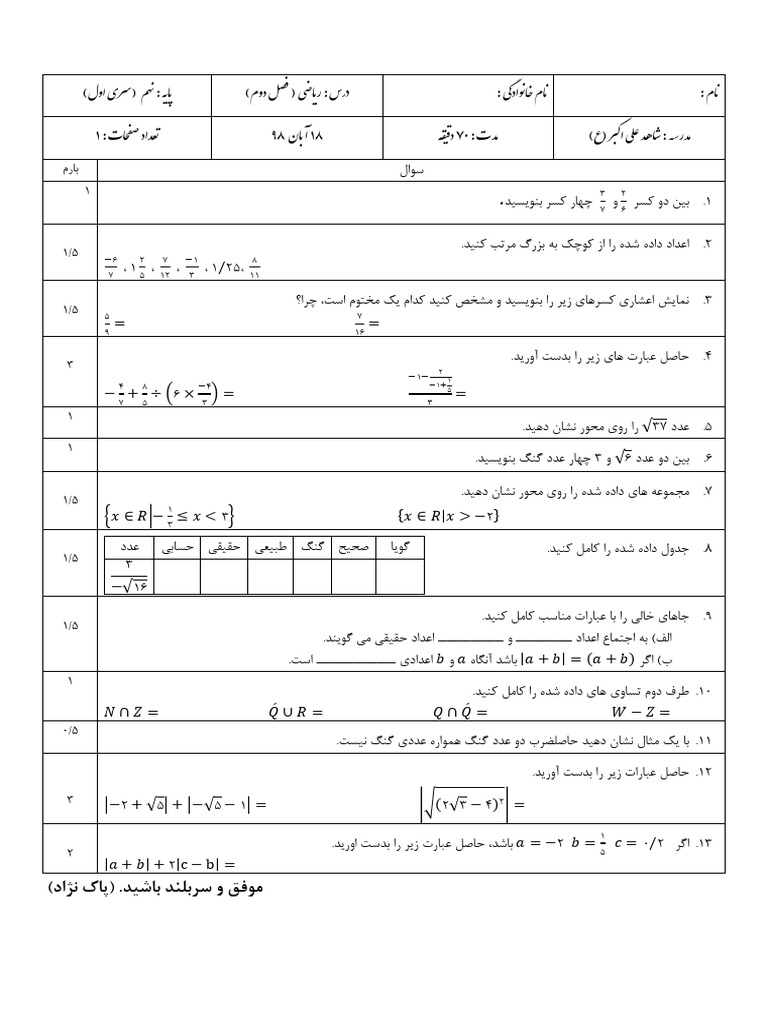 نام : نام خانوادگی : درس : ریاضی ( فصل دوم ) پایه : نهم (سری اول )
مدرسه : شاهد علی اکبر (ع) مدت : ۷۰ دقیقه ۱۸ آبان ۹۸ تعداد صفحات : ۱
سوال بارم
۱. بین دو کسر ۲/۴ و ۳/۷ چهار کسر بنویسید. ۱
۲. اعداد داده شده را از کوچک به بزرگ مرتب کنید. ۱/۵
−۶/۷ ، ۱ ۲/۵ ، ۷/۱۲ ، −۱/۳ ، ۱/۲۵، ۸/۱۱
۳. نمایش اعشاری کسرهای زیر را بنویسید و مشخص کنید کدام یک مختوم است، چرا؟ ۱/۵
۵/۹ = ۷/۱۶ =
۴. حاصل عبارت های زیر را بدست آورید. ۳
−۴/۷ + ۸/۵ ÷ (۶ × −۴/۳) = (−۱−۲/(−۱+۱/۵))/۳ =
۵. عدد √۳۷ را روی محور نشان دهید. ۱
۶. بین دو عدد √۶ و ۳ چهار عدد گنگ بنویسید. ۱
۷. مجموعه های داده شده را روی محور نشان دهید. ۱/۵
{x ∈ R|−۱/۳ ≤ x < ۳} {x ∈ R|x > −۲}
۸. جدول داده شده را کامل کنید. ۱/۵
گویا صحیح گنگ طبیعی حقیقی حسابی عدد
۳/−√۱۶
۹. جاهای خالی را با عبارات مناسب کامل کنید. ۱/۵
الف) به اجتماع اعداد ــــــــــ و ــــــــــ اعداد حقیقی می گویند.
ب) اگر |a + b| = (a + b) باشد آنگاه a و b اعدادی ــــــــــ است.
۱۰. طرف دوم تساوی های داده شده را کامل کنید. ۱
N ∩ Z = Q́ ∪ R = Q ∩ Q́ = W − Z =
۱۱. با یک مثال نشان دهید حاصلضرب دو عدد گنگ همواره عددی گنگ نیست. ۰/۵
۱۲. حاصل عبارات زیر را بدست آورید. ۳
|−۲ + √۵| + |−√۵ − ۱| = |√(۲√۳ − ۴)²| =
۱۳. اگر a = −۲ b = ۱/۵ c = ۰/۲ باشد، حاصل عبارت زیر را بدست اورید. ۲
|a + b| + ۲|c − b| =
موفق و سربلند باشید. (پاک نژاد)